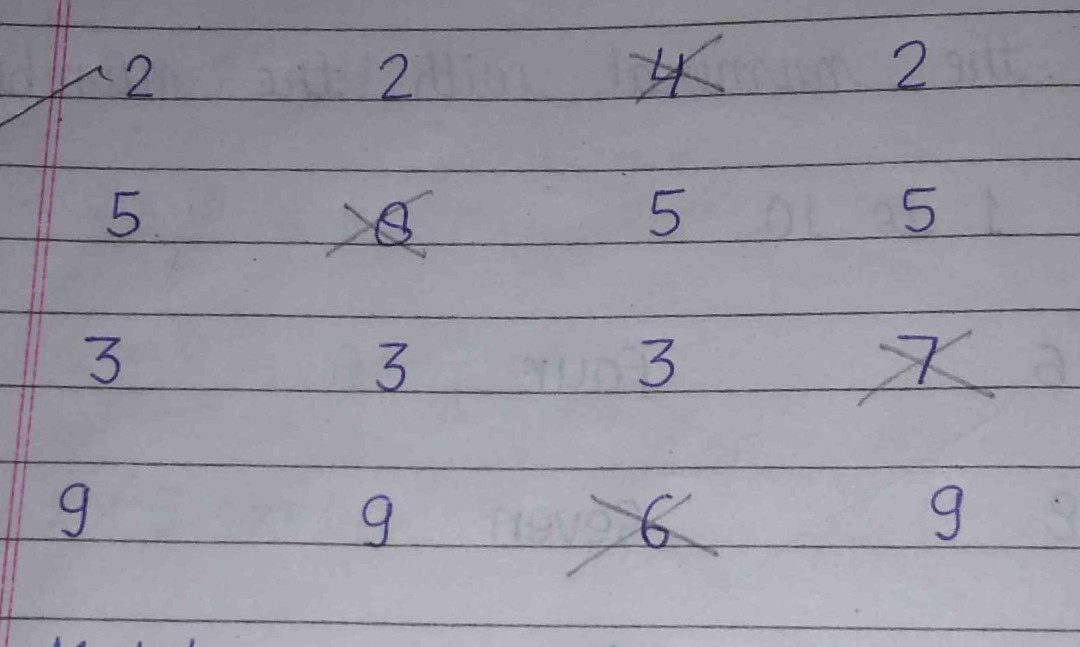 2 2 4 2
5 8 5 5
3 3 3 7
9 9 6 9